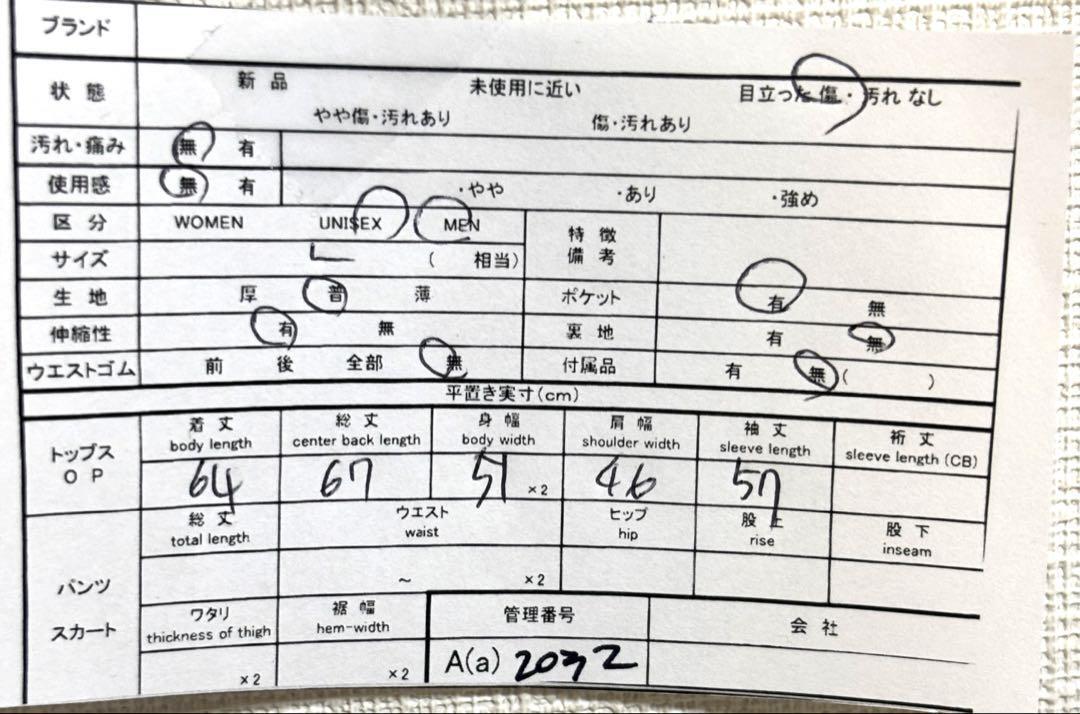 ブランド
状態 新品 未使用に近い 目立った傷・汚れ なし
やや傷・汚れあり 傷・汚れあり
汚れ・痛み 無 有
使用感 無 有 ・やや ・あり ・強め
区分 WOMEN UNISEX MEN 特徴
サイズ L ( 相当) 備考
生地 厚 普 薄 ポケット 有 無
伸縮性 有 無 裏地 有 無
ウエストゴム 前 後 全部 無 付属品 有 無 ( )
平置き実寸(cm)
トップス 着丈 総丈 身幅 肩幅 袖丈 裄丈
OP body length center back length body width shoulder width sleeve length sleeve length (CB)
64 67 51 ×2 46 57
総丈 ウエスト ヒップ 股上 股下
total length waist hip rise inseam
パンツ ~ ×2
スカート ワタリ 裾幅 管理番号 会社
thickness of thigh hem-width
×2 ×2 A(a) 2032